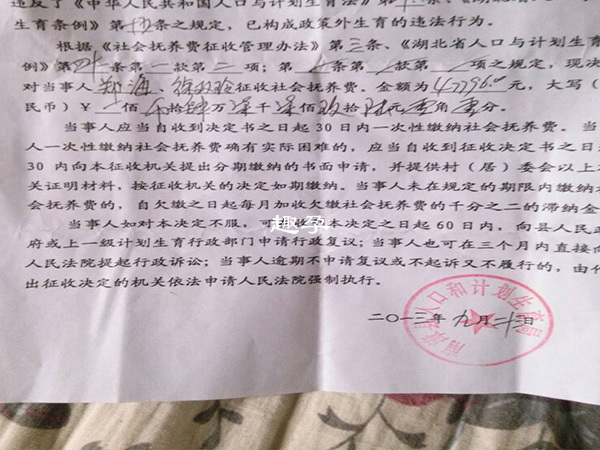 违反了《中华人民共和国人口与计划生育法》第十八条、《湖北
生育条例》第 条之规定，已构成政策外生育的违法行为。
根据《社会抚养费征收管理办法》第三条、《湖北省人口与计划生育
例》第四十条第一款第二项；第 条第 款第 项之规定，现决
对当事人郑海、徐 玲征收社会抚养费。金额为47796.00元，大写（
民币）￥ 佰 拾肆万柒千柒佰玖拾陆元零角零分。
当事人应当自收到决定书之日起30日内一次性缴纳社会抚养费。当
人一次性缴纳社会抚养费确有实际困难的，应当自收到征收决定书之日起
30内向本征收机关提出分期缴纳的书面申请，并提供村（居）委会以上
关证明材料，按征收机关的决定如期缴纳。当事人未在规定的期限内缴纳
会抚养费的，自欠缴之日起每月加收欠缴社会抚养费的千分之二的滞纳金
当事人如对本决定不服，可 本决定之日起60日内，向县人民政
府或上一级计划生育行政部门申请行政复议；当事人也可在三个月内直接向
人民法院提起行政诉讼；当事人逾期不申请复议或不起诉又不履行的，由作
出征收决定的机关依法申请人民法院强制执行。
趣孕
二〇一三年九月二十三日
县人口和计划生育局